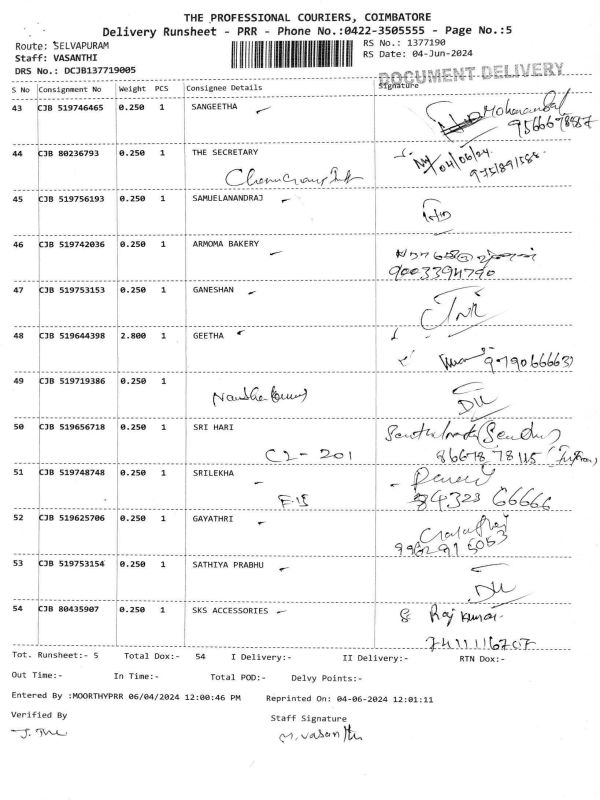 THE PROFESSIONAL COURIERS, COIMBATORE
Delivery Runsheet - PRR - Phone No.:0422-3505555 - Page No.:5
Route: SELVAPURAM RS No.: 1377190
Staff: VASANTHI RS Date: 04-Jun-2024
DRS No.: DCJB137719005
DOCUMENT DELIVERY
S No Consignment No Weight PCS Consignee Details Signature
43 CJB 519746465 0.250 1 SANGEETHA
44 CJB 80236793 0.250 1 THE SECRETARY 04/06/24
45 CJB 519756193 0.250 1 SAMUELANANDRAJ
46 CJB 519742036 0.250 1 ARMOMA BAKERY
9003394790
47 CJB 519753153 0.250 1 GANESHAN
48 CJB 519644398 2.800 1 GEETHA
49 CJB 519719386 0.250 1
50 CJB 519656718 0.250 1 SRI HARI
C2-201
51 CJB 519748748 0.250 1 SRILEKHA
F-15 84323 66666
52 CJB 519625706 0.250 1 GAYATHRI
53 CJB 519753154 0.250 1 SATHIYA PRABHU
54 CJB 80435907 0.250 1 SKS ACCESSORIES Raj Kumar
Tot. Runsheet:- 5 Total Dox:- 54 I Delivery:- II Delivery:- RTN Dox:-
Out Time:- In Time:- Total POD:- Delvy Points:-
Entered By :MOORTHYPRR 06/04/2024 12:00:46 PM Reprinted On: 04-06-2024 12:01:11
Verified By Staff Signature
M. Vasanthi